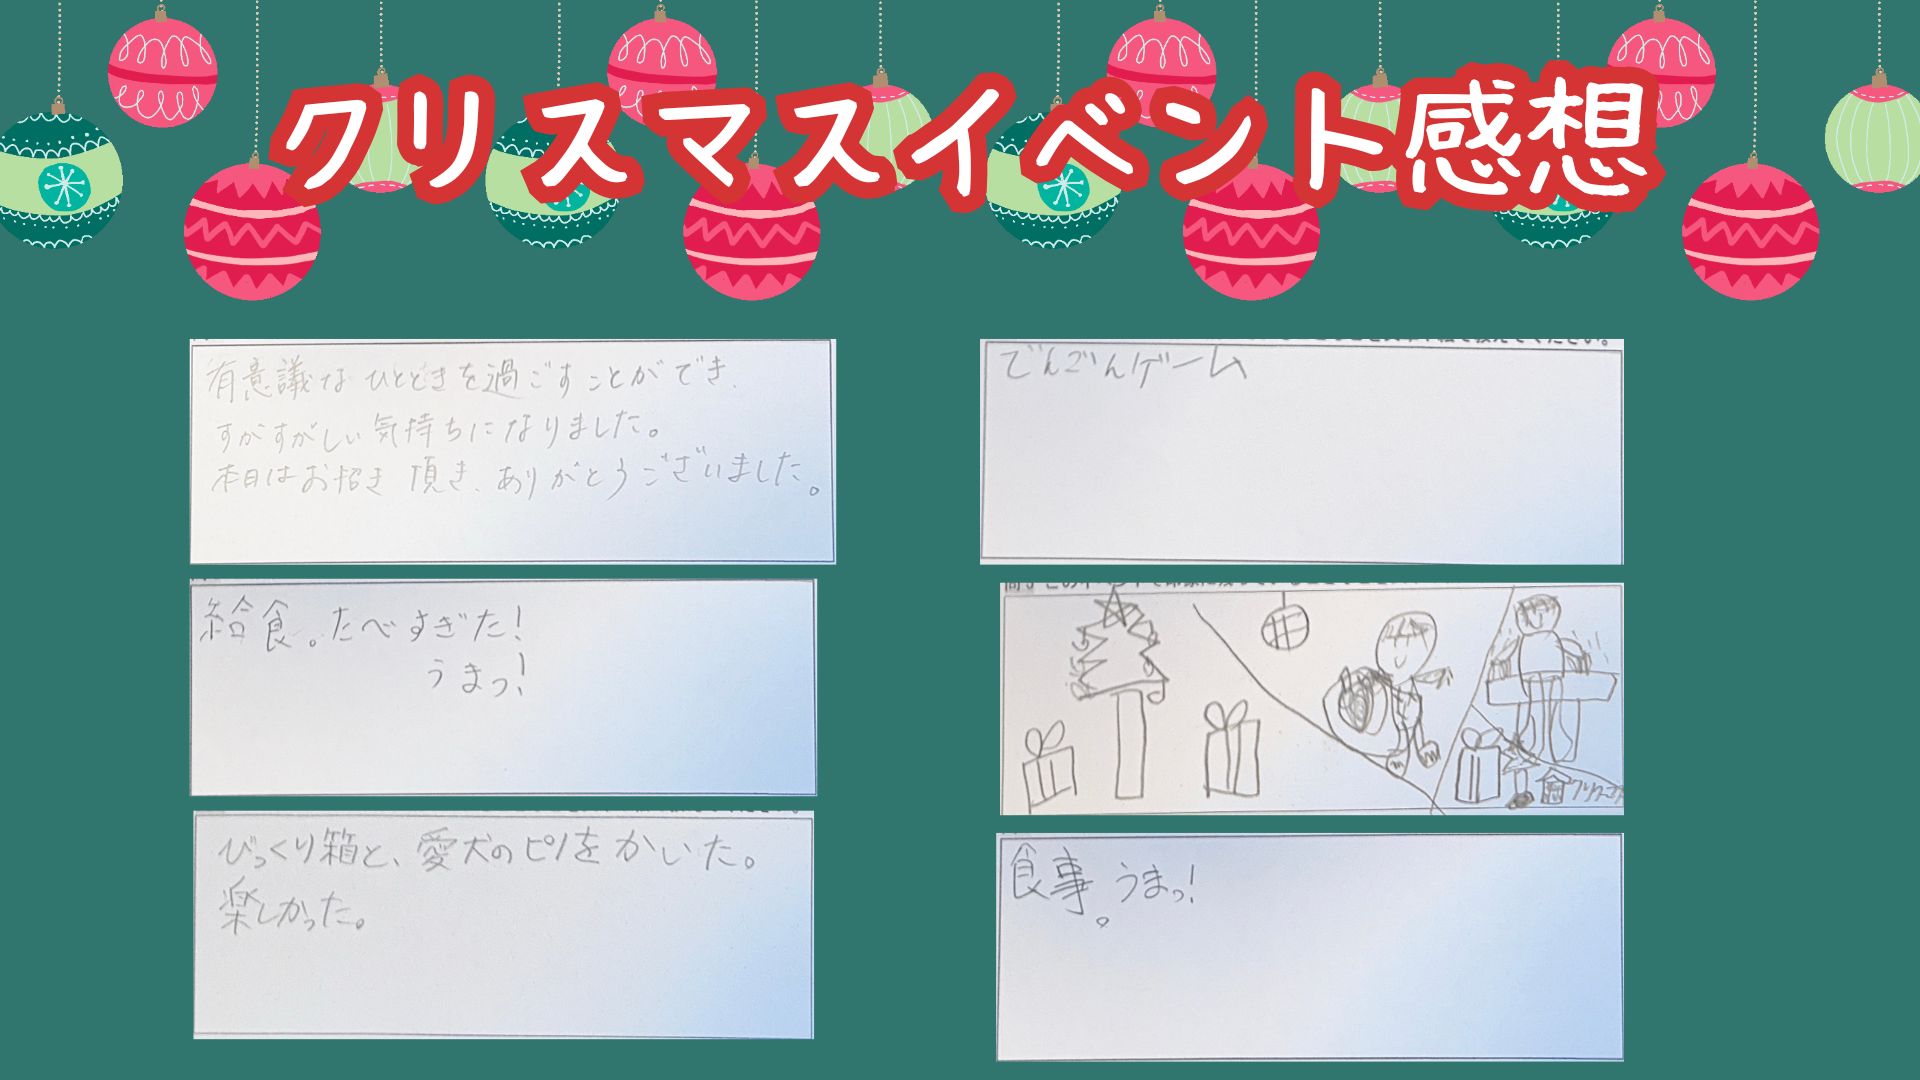 クリスマスイベント感想
有意議なひとときを過ごすことができ、
すがすがしい気持ちになりました。
本日はお招き頂き、ありがとうございました。
給食。たべすぎた!
うまっ!
びっくり箱と、愛犬のピノをかいた。
楽しかった。
でんごんゲーム
食事。うまっ!